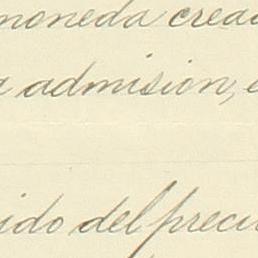 moneda crea
admision,
ido del preci